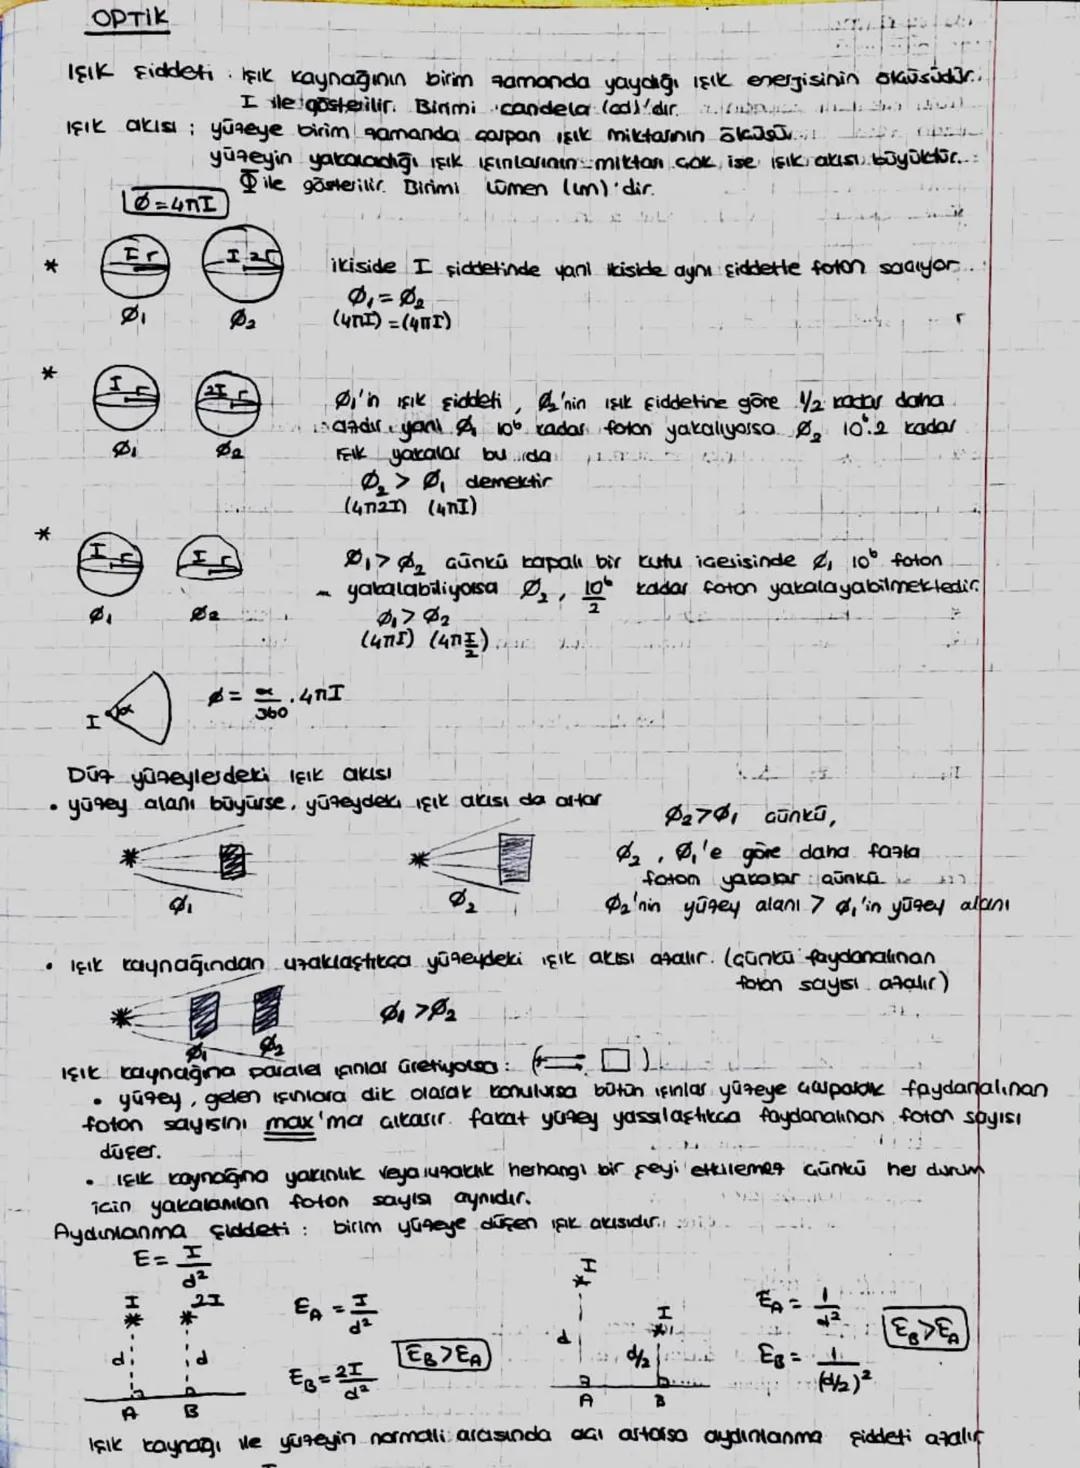 OPTİK
Işık şiddeti : Işık kaynağının birim zamanda yaydığı ışık enerjisinin ölçüsüdür.
I ile gösterilir. Birimi candela (cd)'dır.
Işık akısı : yüzeye birim zamanda çarpan ışık miktarının ölçüsü
yüzeyin yakaladığı ışık ışınlarının miktarı çok ise ışık akısı büyüktür.
Φ ile gösterilir. Birimi Lümen (lm)'dir.
Ø=4πI
* I r I 2r ikiside I şiddetinde yani ikiside aynı şiddette foton saçıyor
Ø₁ = Ø₂
Ø₁ Ø₂ (4πI) = (4πI)
* I r 2I r Ø₁'in ışık şiddeti, Ø₂'nin ışık şiddetine göre 1/2 kadar daha
azdır. yani Ø₁ 10⁶ kadar foton yakalıyorsa Ø₂ 10⁶.2 kadar
Ø₁ Ø₂ ışık yakalar bu da
Ø₂ > Ø₁ demektir
(4π2I) (4πI)
* I r I r Ø₁ > Ø₂ Çünkü kapalı bir kutu içerisinde Ø₁ 10⁶ foton
yakalabiliyorsa Ø₂, 10⁶/2 kadar foton yakalayabilmektedir.
Ø₁ Ø₂ Ø₁ > Ø₂
(4πI) (4π I/2)
I α Ø = α/360 . 4πI
Düz yüzeylerdeki ışık akısı
• yüzey alanı büyürse, yüzeydeki ışık akısı da artar
Ø₂ > Ø₁ çünkü,
Ø₂, Ø₁'e göre daha fazla
foton yakalar çünkü
Ø₁ Ø₂ Ø₂'nin yüzey alanı > Ø₁'in yüzey alanı
• Işık kaynağından uzaklaştıkça yüzeydeki ışık akısı azalır. (Çünkü faydanalınan
foton sayısı azalır)
Ø₁ > Ø₂
Ø₁ Ø₂
Işık kaynağına paralel ışınlar üretiyorsa : ( )
• yüzey, gelen ışınlara dik olarak konulursa bütün ışınlar yüzeye çarparak faydanalınan
foton sayısını max'ma çıkarır. fakat yüzey yassılaştıkca faydonalınan foton sayısı
düşer.
• ışık kaynağına yakınlık veya uzaklık herhangi bir şeyi etkilemez Çünkü her durum
için yakalanılan foton sayısı aynıdır.
Aydınlanma Şiddeti : birim yüzeye düşen ışık akısıdır.
E = I/d²
I 2I d d A B
E_A = I/d²
E_B = 2I/d²
E_B > E_A
I d I d/2 A B
E_A = 1/d²
E_B = 1/(d/2)²
E_B > E_A
Işık kaynağı ile yüzeyin normali arasında açı artarsa aydınlanma şiddeti azalır